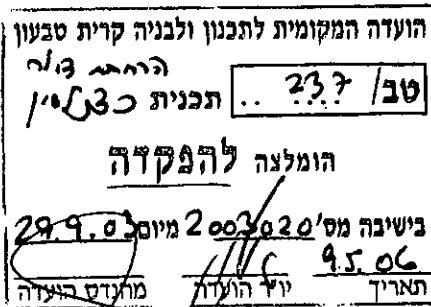 הועדה המקומית לתכנון ולבניה קרית טבעון
הרחבת
טב/ 237 .. תכנית
הומלצה להפקדה
בישיבה מס' 2003020 מיום 29.9.03
9.5.06
תאריך יו"ר הועדה מהנדס הועדה